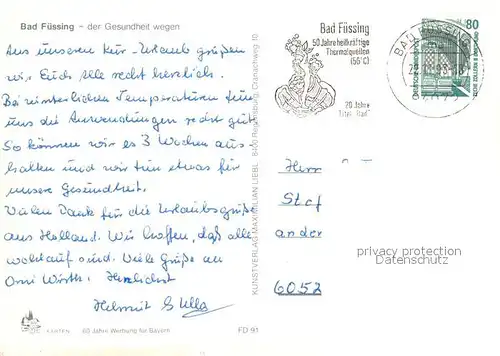 Bad Füssing - der Gesundheit wegen
Aus unserem Kur-Urlaub grüßen
wir Euch Alle recht herzlich.
Bei winterlichen Temperaturen tun
uns die Anwendungen recht gut.
So können wir es 3 Wochen aus-
halten und wir tun etwas für
unsere Gesundheit.
Vielen Dank für die Urlaubsgrüße
aus Holland. Wir hoffen, daß alle
wohlauf sind. Viele Grüße an
Omi Wörth. Herzlichst
Helmut & Ulla
KARTEN 60 Jahre Werbung für Bayern FD 91
KUNSTVERLAG MAXIMILIAN LIEBL 8400 Regensburg
Bad Füssing
50 Jahre heilkräftige
Thermalquellen
(56°C)
20 Jahre
Titel "Bad"
BAD FÜSSING
80
Herr
Stef
ander
6052
privacy protection
watermark